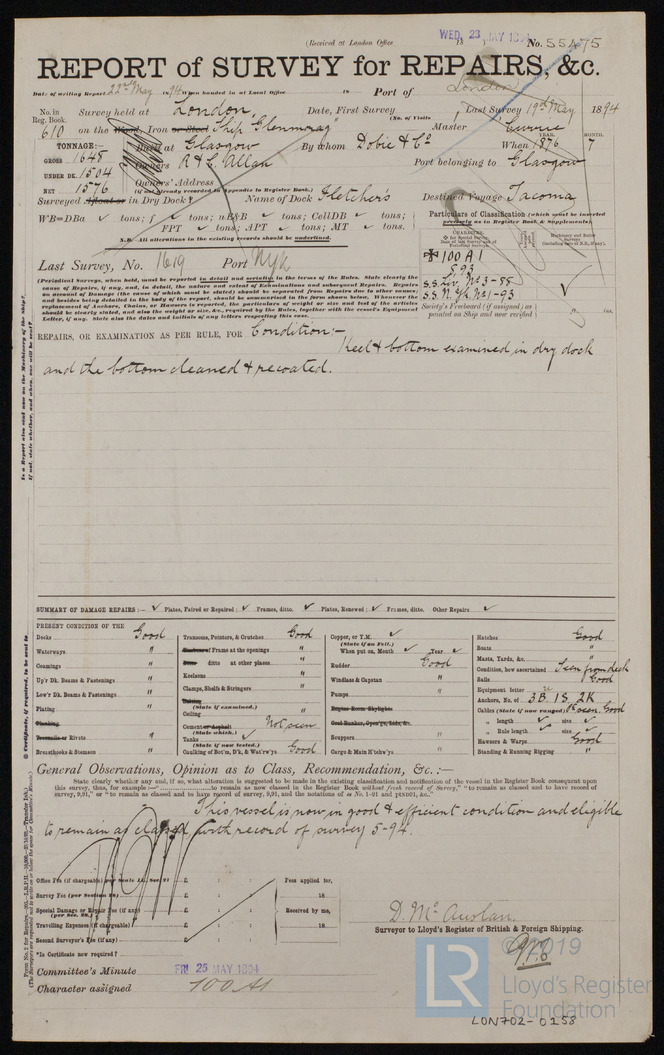 (Received at London Office WED. 23 MAY 1894 No. 55475
REPORT of SURVEY for REPAIRS, &c.
Date of writing Report 22nd May 1894 When handed in at Local Office 18 Port of London
No. in Reg. Book. Survey held at London Date, First Survey Last Survey 19th May 1894
(No. of Visits
610 on the Wood, Iron or Steel Ship "Glenmorag" Master Currie
TONNAGE:— Built at Glasgow By whom Dobie & Co When 1876 7
YEAR. MONTH.
GROSS 1648 Owners A & J. Allan Port belonging to Glasgow
UNDER DK. 1504
NET 1576 Owners' Address
(if not already recorded in Appendix to Register Book.)
Surveyed Afloat or in Dry Dock? Name of Dock Fletcher's Destined Voyage Tacoma
WB=DBa ✓ tons; f ✓ tons; uE&B ✓ tons; CellDB ✓ tons;
FPT ✓ tons; APT ✓ tons; MT ✓ tons.
N.B. All alterations in the existing records should be underlined.
Particulars of Classification (which must be inserted precisely as in Register Book & Supplements).
✠ 100 A 1
5.93
S.S. Liv. No 3-88
S.S. N.Yk No 1-93
Society's Freeboard (if assigned) as painted on Ship and now verified
Last Survey, No. 1619 Port Nyk
(Periodical Surveys, when held, must be reported in detail and seriatim in the terms of the Rules. State clearly the
cause of Repairs, if any, and, in detail, the nature and extent of Examinations and subsequent Repairs. Repairs
on account of Damage (the cause of which must be stated) should be separated from Repairs due to other causes;
and besides being detailed in the body of the report, should be summarised in the form shown below. Whenever the
replacement of Anchors, Chains, or Hawsers is reported, the particulars of weight or size and test of the articles
should be clearly stated, and also the weight or size, &c., required by the Rules, together with the vessel's Equipment
Letter, if any. State also the dates and initials of any letters respecting this case.
REPAIRS, OR EXAMINATION AS PER RULE, FOR Condition:—
Keel & bottom examined in dry dock
and the bottom cleaned & recoated.
Is a Report also sent now on the Machinery of the Ship?
If not, state whether, and when, one will be sent?
SUMMARY OF DAMAGE REPAIRS:— ✓ Plates, Faired or Repaired; ✓ Frames, ditto. ✓ Plates, Renewed; ✓ Frames, ditto. Other Repairs ✓
PRESENT CONDITION OF THE
Decks Good
Waterways "
Coamings "
Up'r Dk. Beams & Fastenings "
Low'r Dk. Beams & Fastenings "
Plating "
Planking
Treenails or Rivets "
Breasthooks & Stemson "
Transoms, Pointers, & Crutches Good
Frame at the openings "
Ditto ditto at other places "
Keelsons "
Clamps, Shelfs & Stringers "
Salting
(State if examined.)
Ceiling "
Cement or Asphalt Not seen
(State which.)
Tanks ✓
(State if now tested.)
Caulking of Bot'm, D'k, & Wat'rw'ys Good
Copper, or Y.M. ✓
(State if on Felt.)
When put on, Month ✓ Year ✓
Rudder Good
Windlass & Capstan "
Pumps "
Engine Room Skylights
Coal Bunker, Open'gs, Lids, &c.
Scuppers "
Cargo & Main H'tchw'ys "
Hatches Good
Boats "
Masts, Yards, &c. "
Condition, how ascertained Seen from deck
Sails Good
Equipment letter
Anchors, No. of 3B. 1S. 2K
Cables (State if now ranged) seen. Good
" length ✓ size ✓
" Rule length ✓ size ✓
Hawsers & Warps Good
Standing & Running Rigging "
General Observations, Opinion as to Class, Recommendation, &c.:—
State clearly whether any, and if so, what alteration is suggested to be made in the existing classification and notification of the vessel in the Register Book consequent upon
this survey, thus, for example:—"..........to remain as now classed in the Register Book without fresh record of Survey," "to remain as classed and to have record of
survey, 9,91," or "to remain as classed and to have record of survey, 9,91, and the notations of ss No. 1-91 and ptND91, &c."
This vessel is now in good & efficient condition and eligible
to remain as classed with record of survey 5-94.
Office Fee (if chargeable) per Scale II., Sec. 27) £ : : Fees applied for,
Survey Fee (per Section 28) £ : : 18
Special Damage or Repair Fee (if any) £ : : Received by me,
(per Sec. 28.)
Travelling Expenses (if chargeable) £ : : 18
Second Surveyor's Fee (if any) £ : :
*Is Certificate now required?
Surveyor to Lloyd's Register of British & Foreign Shipping.
Committee's Minute FRI 25 MAY 1894
Character assigned 100 A1
© 2019
LR
Lloyd's Register
Foundation
LON702-0258